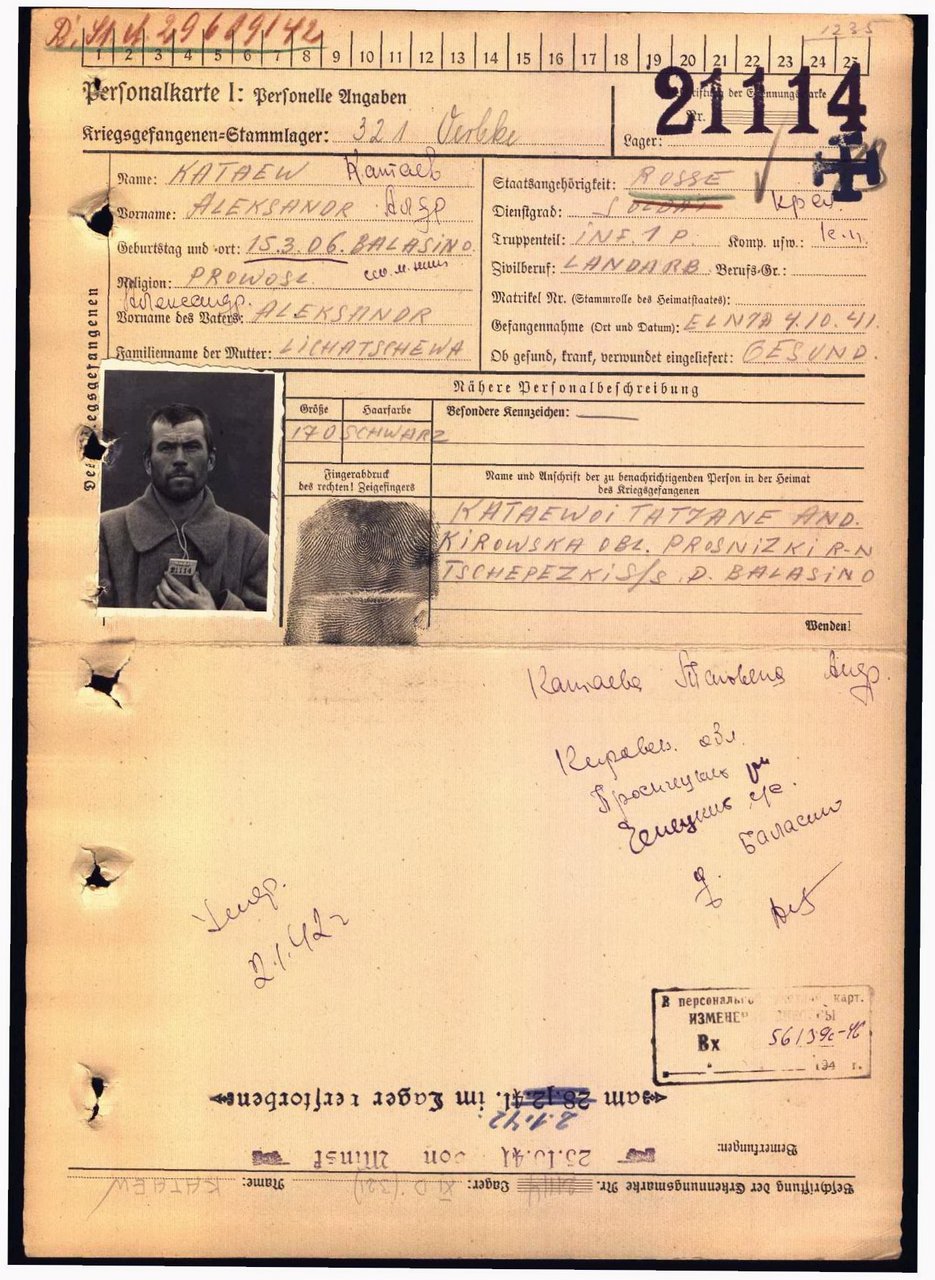 1 2 3 4 5 6 7 8 9 10 11 12 13 14 15 16 17 18 19 20 21 22 23 24 25
1235
Personalkarte I: Personelle Angaben
Kriegsgefangenen-Stammlager: 321 Oerbke
der Erkennungsmarke
Nr. 21114
Lager:
Name: KATAEW Катаев
Vorname: ALEKSANDR
Geburtstag und -ort: 15.3.06. BALASINO.
Religion: PROWOSL.
Александр.
Vorname des Vaters: ALEKSANDR
Familienname der Mutter: LICHATSCHEWA
Staatsangehörigkeit: RUSSE
Dienstgrad: SOLDAT
Truppenteil: INF. 1 P. Komp. usw.:
Zivilberuf: LANDARB. Berufs-Gr.:
Matrikel Nr. (Stammrolle des Heimatstaates):
Gefangennahme (Ort und Datum): ELNJA 4.10.41.
Ob gesund, krank, verwundet eingeliefert: GESUND.
Des Kriegsgefangenen
21114
Nähere Personalbeschreibung
Größe Haarfarbe Besondere Kennzeichen:
170 SCHWARZ
Fingerabdruck
des rechten! Zeigefingers
Name und Anschrift der zu benachrichtigenden Person in der Heimat
des Kriegsgefangenen
KATAEWOI TATJANE AND.
KIROWSKA OBL. PROSNIZKI R-N
TSCHEPEZKI S/S. D. BALASINO
Wenden!
Катаева Андр.
Киров. обл.
Просницкий
Чепецкий с/с.
д. Баласино
Умер.
2.1.42 г
В персональ карт.
ИЗМЕНЕ
Вх 56139с-46
194 г.
am 28.12.41. im Lager verstorben
2.1.42
25.10.41 von Minsk
Bemerkungen:
Beschriftung der Erkennungsmarke Nr. 21114 Lager: XI D (321) Name: KATAEW